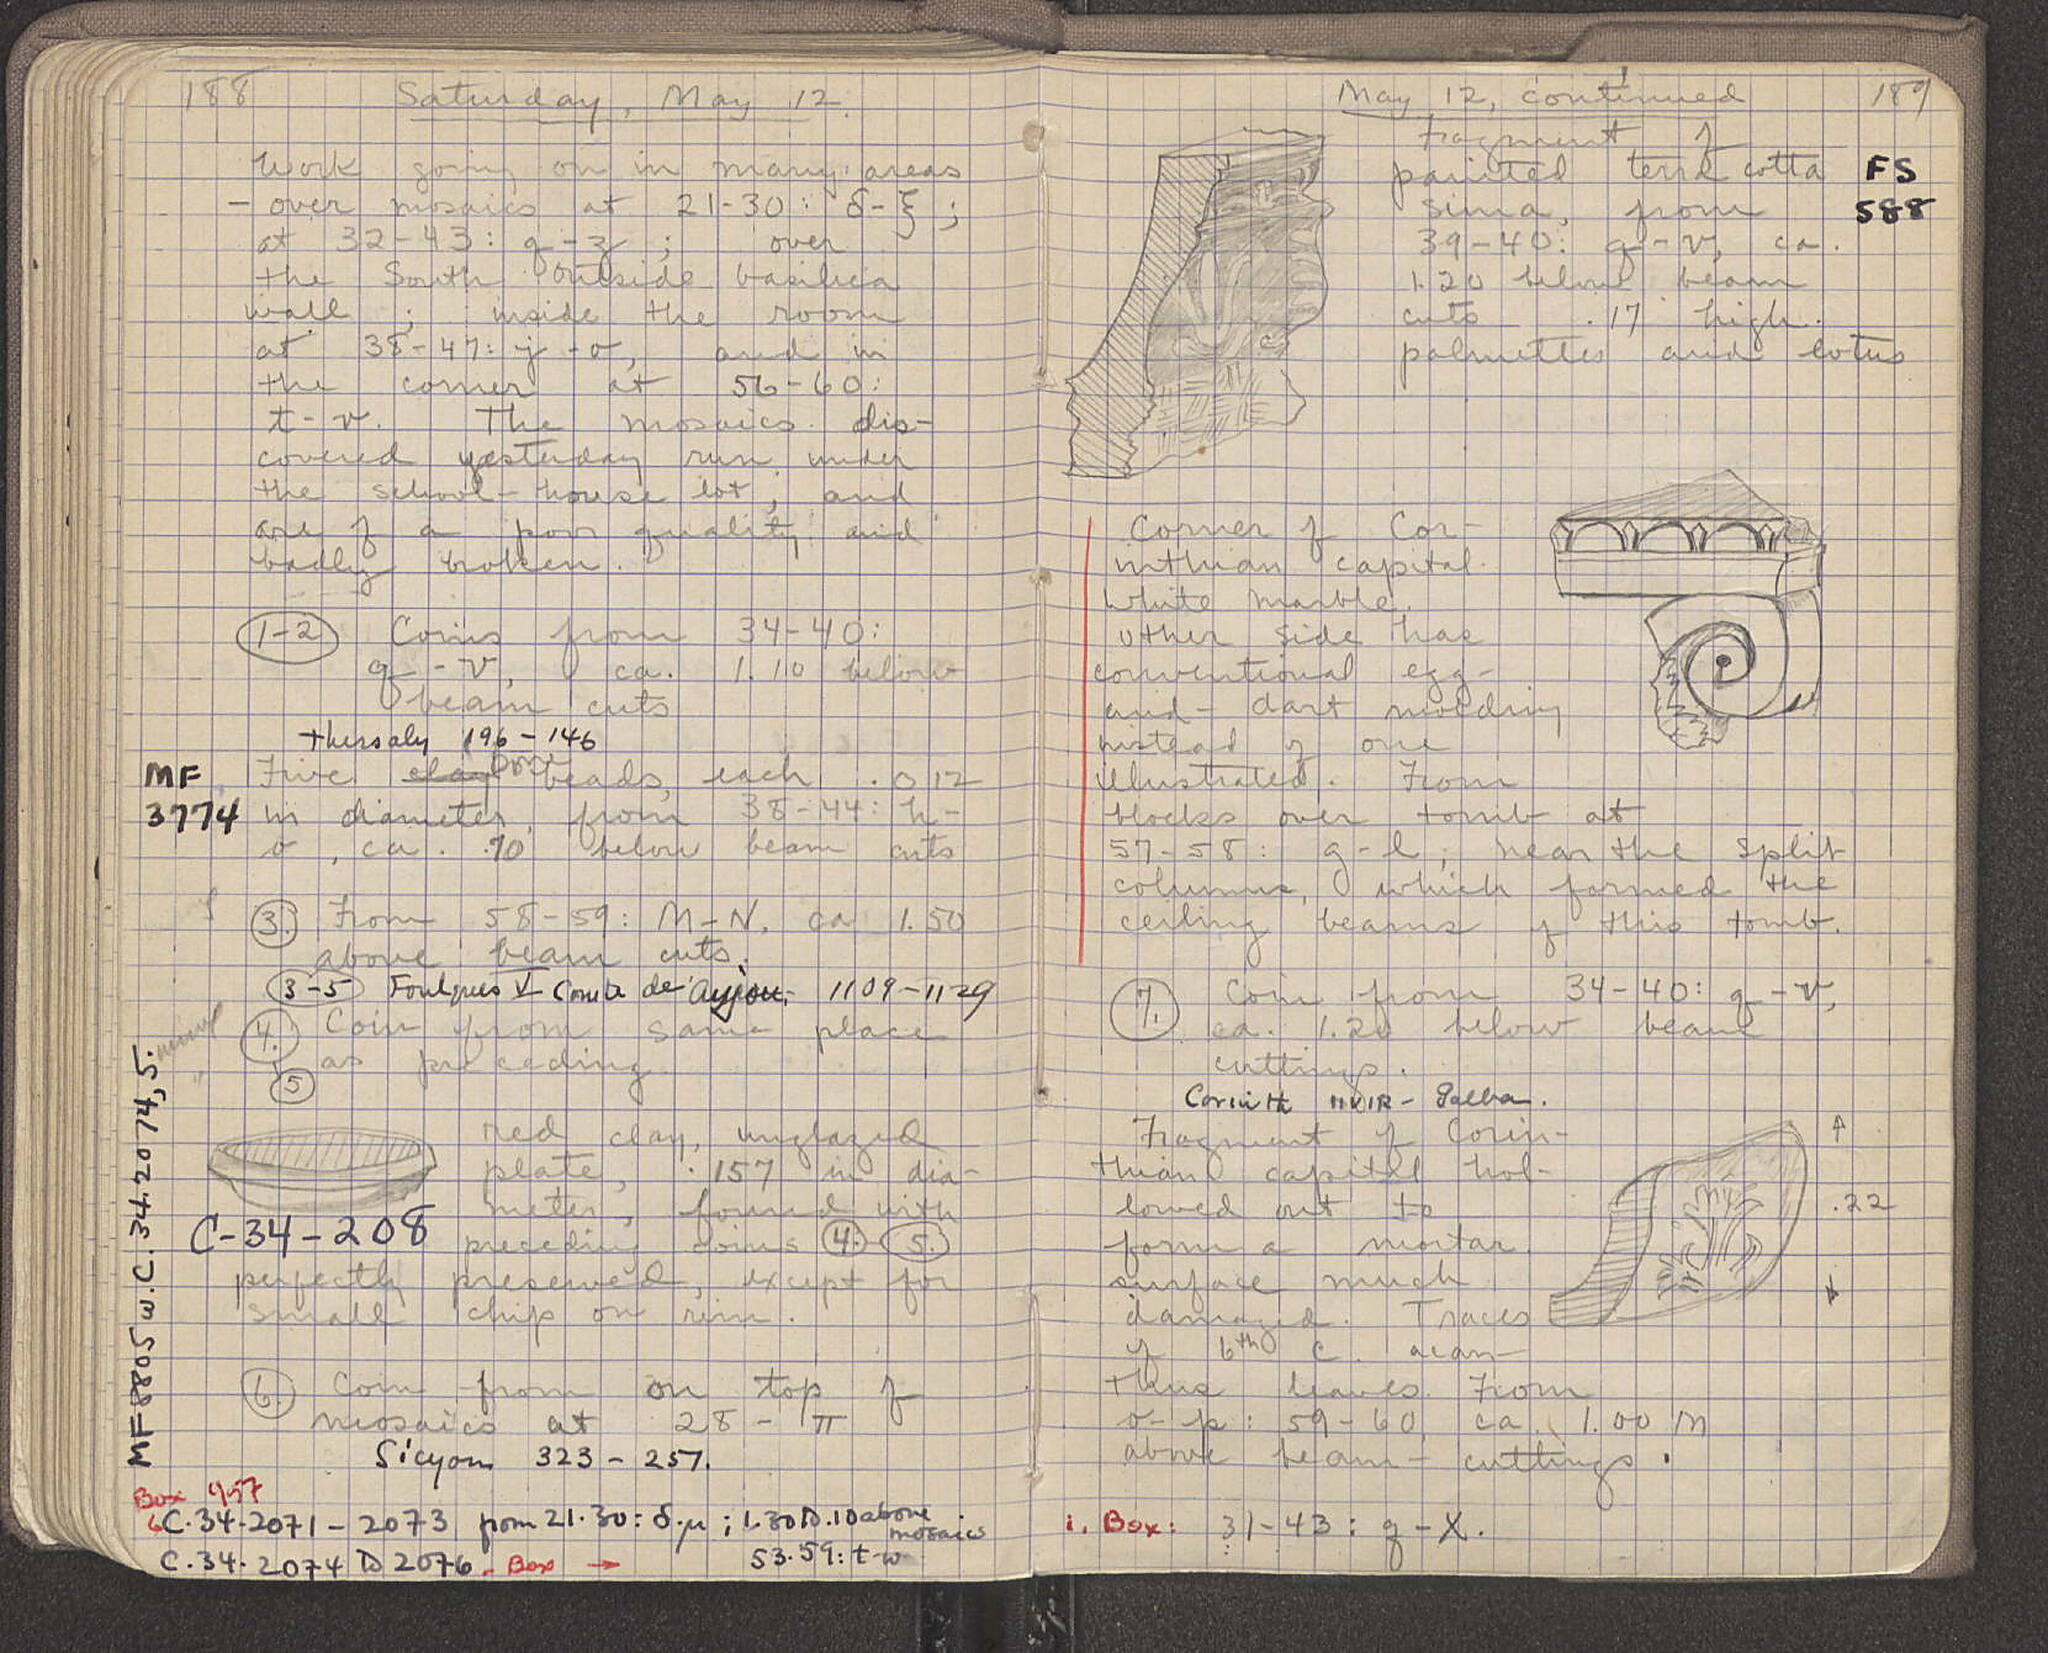 188
Saturday, May 12.
Work going on in many areas
- over mosaics at 21-30: δ-ξ;
at 32-43: q-z; over
the South outside basilica
wall; inside the room
at 38-47: j-o, and in
the corner at 56-60:
t-v. The mosaics dis-
covered yesterday run under
the school-house lot, and
are of a poor quality and
badly broken.
1-2 Coins from 34-40:
q-v, ca. 1.10 below
beam cuts
Thessaly 196-146
MF
3774
Five clay bone beads, each .012
in diameter, from 38-44: h-
o, ca. .70 below beam cuts
3. From 58-59: M-N, ca 1.50
above beam cuts.
3-5 Foulques V Comte de Anjou, 1109-1129
4. Coin from same place
5 as preceding
red clay, unglazed
plate, .157 in dia-
meter, found with
C-34-208
preceding coins 4. 5.
perfectly preserved, except for
small chip on rim.
6. Coin from on top of
mosaics at 28-π
Sicyon 323-257.
MF 8805 w. C.34.2074,5.
Box 457
C.34-2071-2073 from 21.30: δ.μ; 1.30 to .10 above
mosaics
C.34.2074 to 2076 - Box → 53.59: t-w
May 12, continued
189
Fragment of
painted terra cotta
sima, from
39-40: q-v, ca.
1.20 below beam
cuts .17 high.
palmettes and lotus
FS
588
Corner of Cor-
inthian capital.
White marble.
other side has
conventional egg-
and-dart molding
instead of one
illustrated. From
blocks over tomb at
57-58: g-l; near the split
columns, which formed the
ceiling beams of this tomb.
7. Coin from 34-40: q-v,
ca. 1.20 below beam
cuttings.
Corinth IIVIR - Galba.
Fragment of Corin-
thian capital hol-
lowed out to
form a mortar.
surface much
damaged. Traces
of 6th c. acan-
thus leaves. From
o-p: 59-60, ca. 1.00 m
above beam-cuttings.
.22
i. Box: 31-43: q-X.